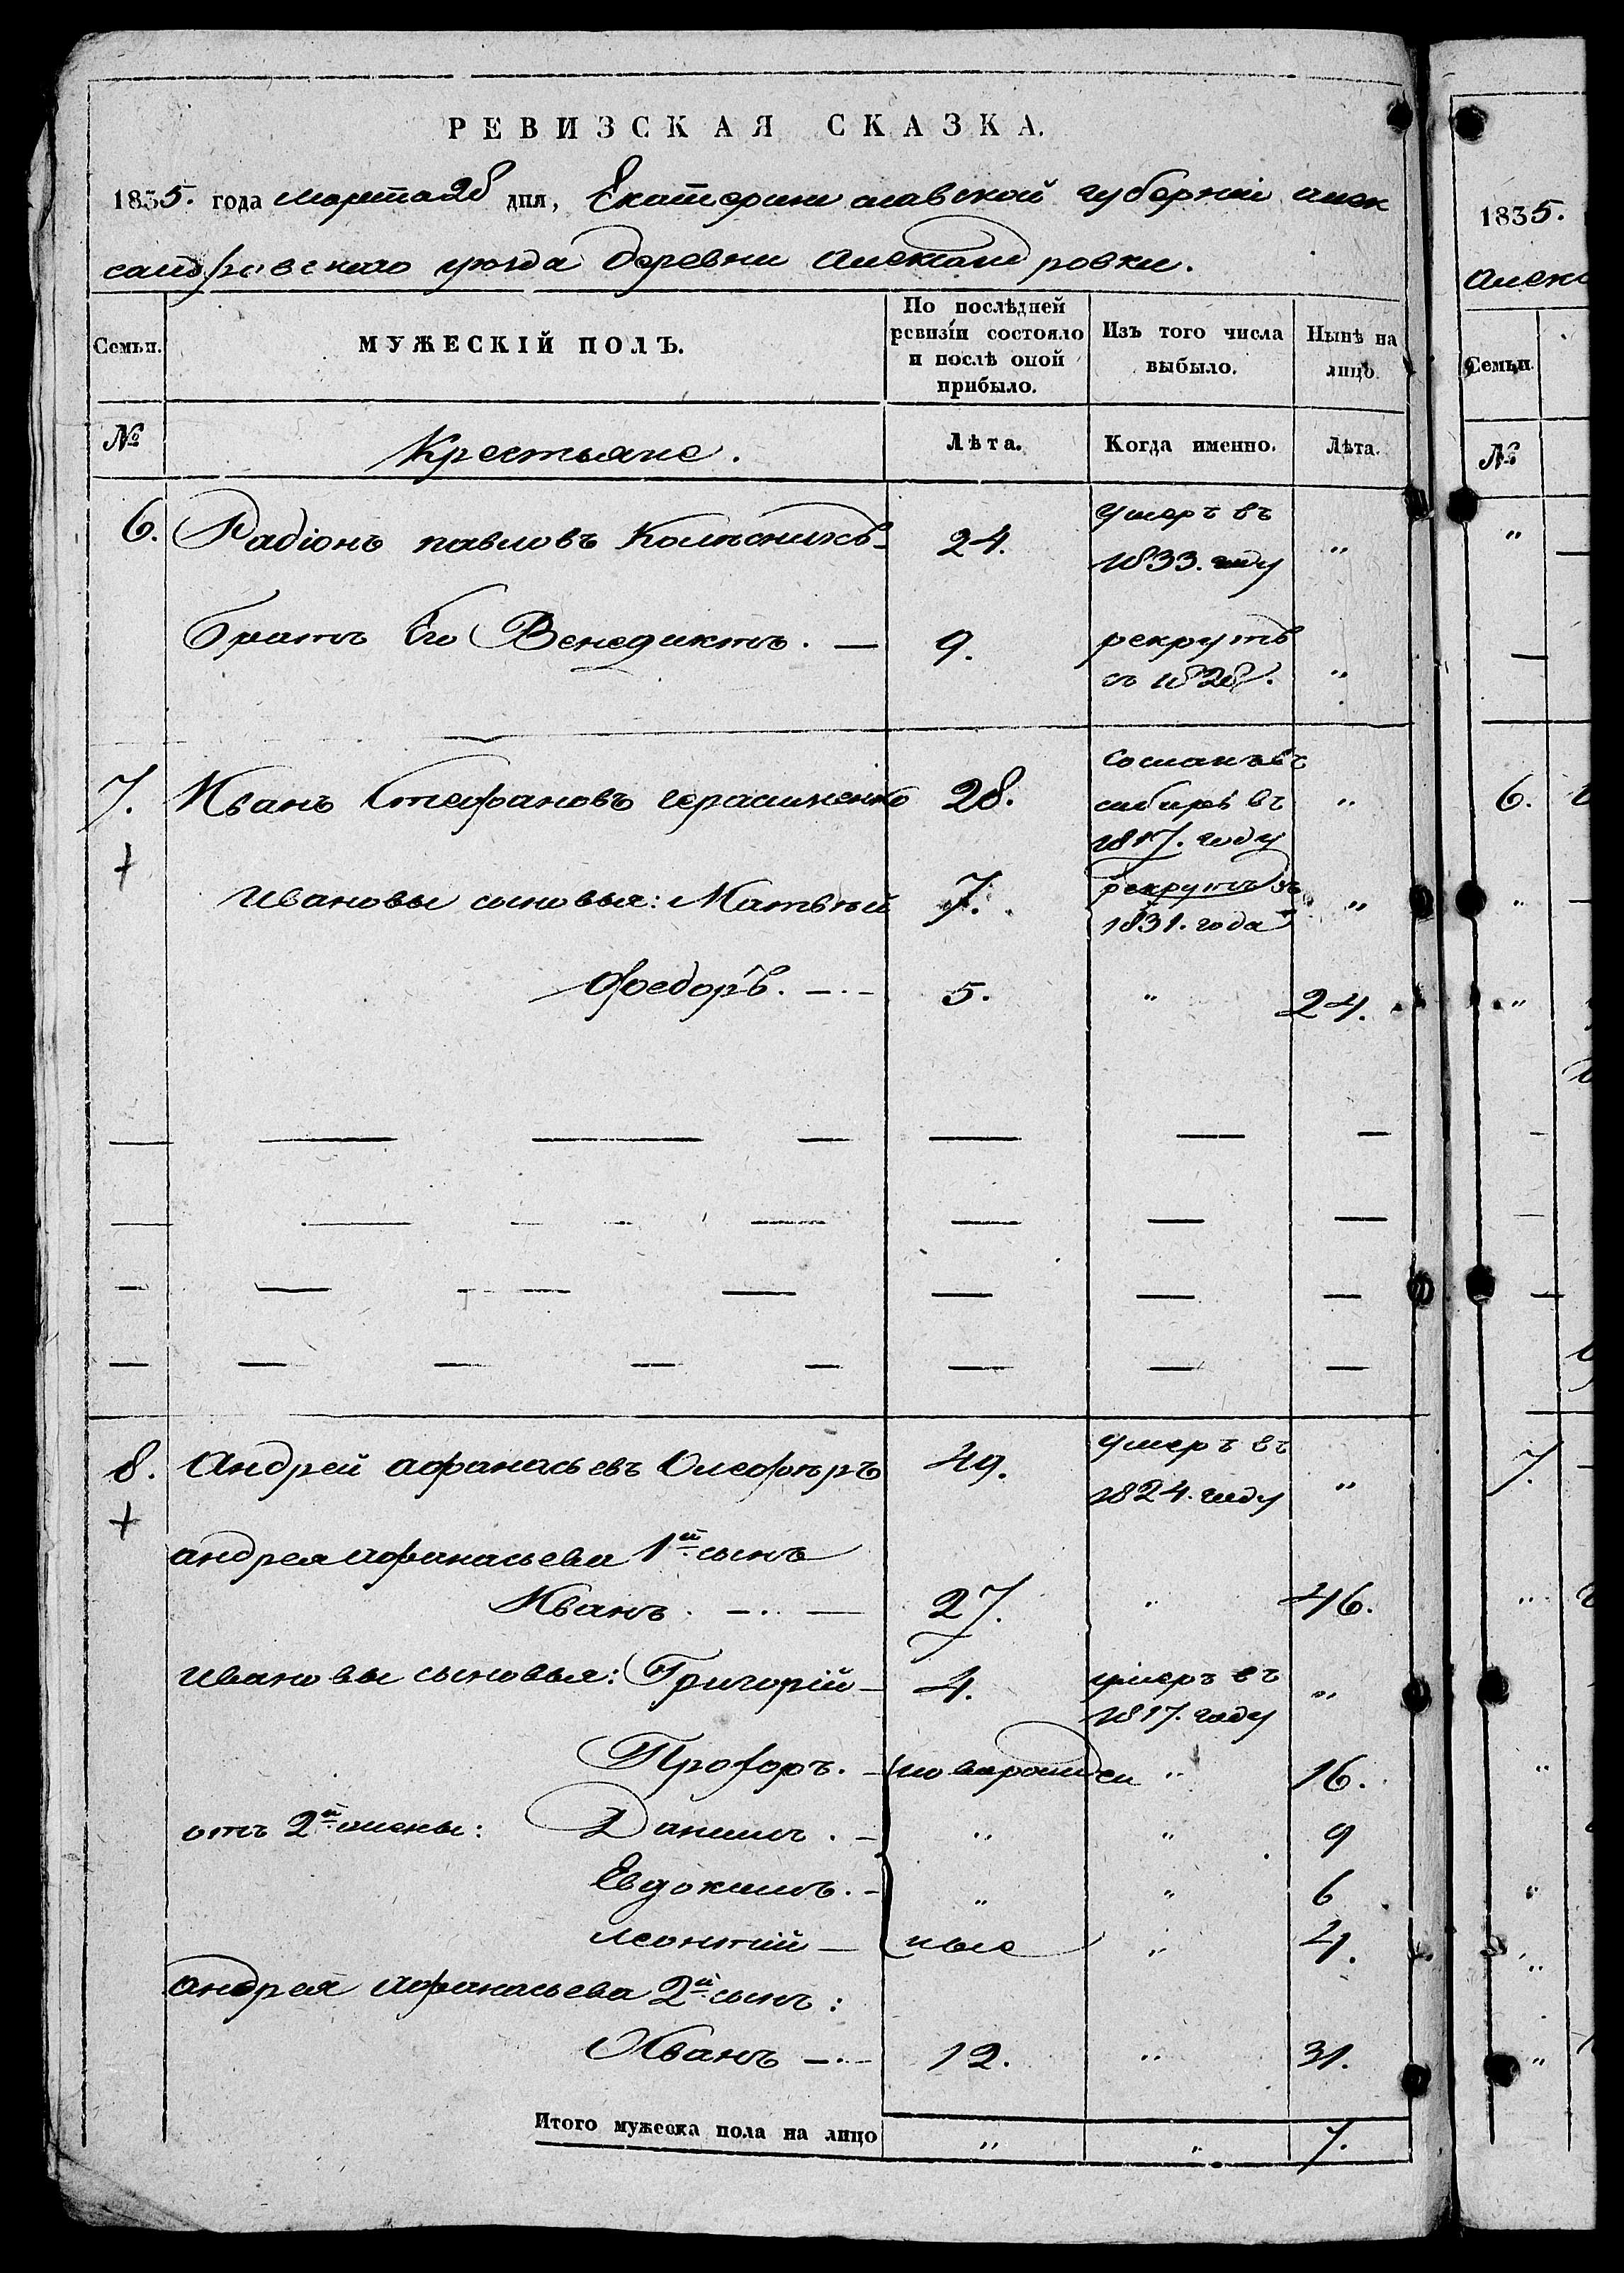 РЕВИЗСКАЯ СКАЗКА.
1835. года марта 28 дня, Екатеринославской губерніи Алек
сандровскаго уезда деревни Александровки.
Семьи. МУЖЕСКІЙ ПОЛЪ. По послѣдней ревизіи состояло и послѣ оной прибыло. Изъ того числа выбыло. Нынѣ на лицо.
№ Крестьяне. Лѣта. Когда именно. Лѣта.
6. Радіонъ павловъ Колѣсниковъ 24. умеръ въ 1833. году „
братъ Его Венедиктъ. — 9. рекрутъ съ 1828. „
7. Иванъ Стефановъ герасименко 28. сосланъ въ сибирь въ 1817. году „
+
Ивановы сыновья: Матвѣй 7. рекрутъ съ 1831. года „
Федоръ. — 5. „ 24.
8. Андрей афанасьевъ Олеферъ 49. умеръ въ 1824. году „
+
андрея афанасьева 1й сынъ
Иванъ. — 27. „ 46.
Ивановы сыновья: Григорій 4. умеръ въ 1817. году „
Профоръ. — новорожден „ 16.
отъ 2й жены: Данилъ. — „ „ 9
Евдокимъ. — „ „ 6
Леонтій — ные „ 4.
андрея Афанасьева 2й сынъ:
Иванъ — 12. „ 31.
Итого мужеска пола на лицо „ „ 7.
1835.
Алекс
Семьи.
№
„
6.
„
„
7.
„
„
„
„
„